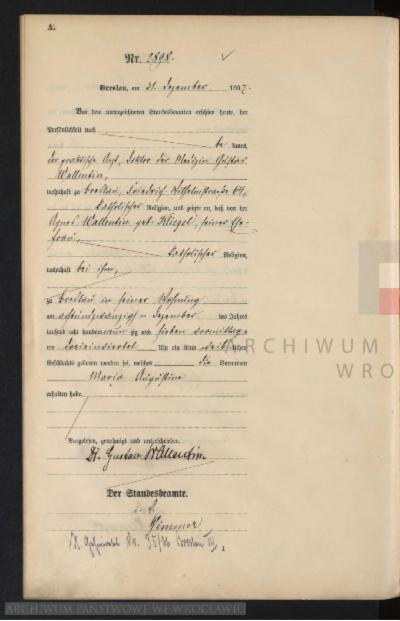 №
Nr. 2898.
Breslau, am 31. Dezember 1897.
Vor dem unterzeichneten Standesbeamten erschien heute, der
Persönlichkeit nach
be kannt,
der praktische Arzt, Doktor der Medizin Gustav
Wallentin,
wohnhaft zu Breslau, Friedrich Wilhelmstraße 64,
katholischer Religion, und zeigte an, daß von der
Agnes Wallentin geb. Kliegel, seiner Ehe-
frau,
katholischer Religion,
wohnhaft bei ihm,
zu Breslau in seiner Wohnung
am Dezember des Jahres
tausend acht hundert neun zig und sieben vormittags
um Uhr ein Kind weiblichen
Geschlechts geboren worden sei, welches die Vornamen
Maria Augustine
erhalten habe.
Vorgelesen, genehmigt und unterschrieben.
Dr. Gustav Wallentin.
Der Standesbeamte.
ARCHIWUM
WRO
ARCHIWUM PAŃSTWOWE WE WROCŁAWIU